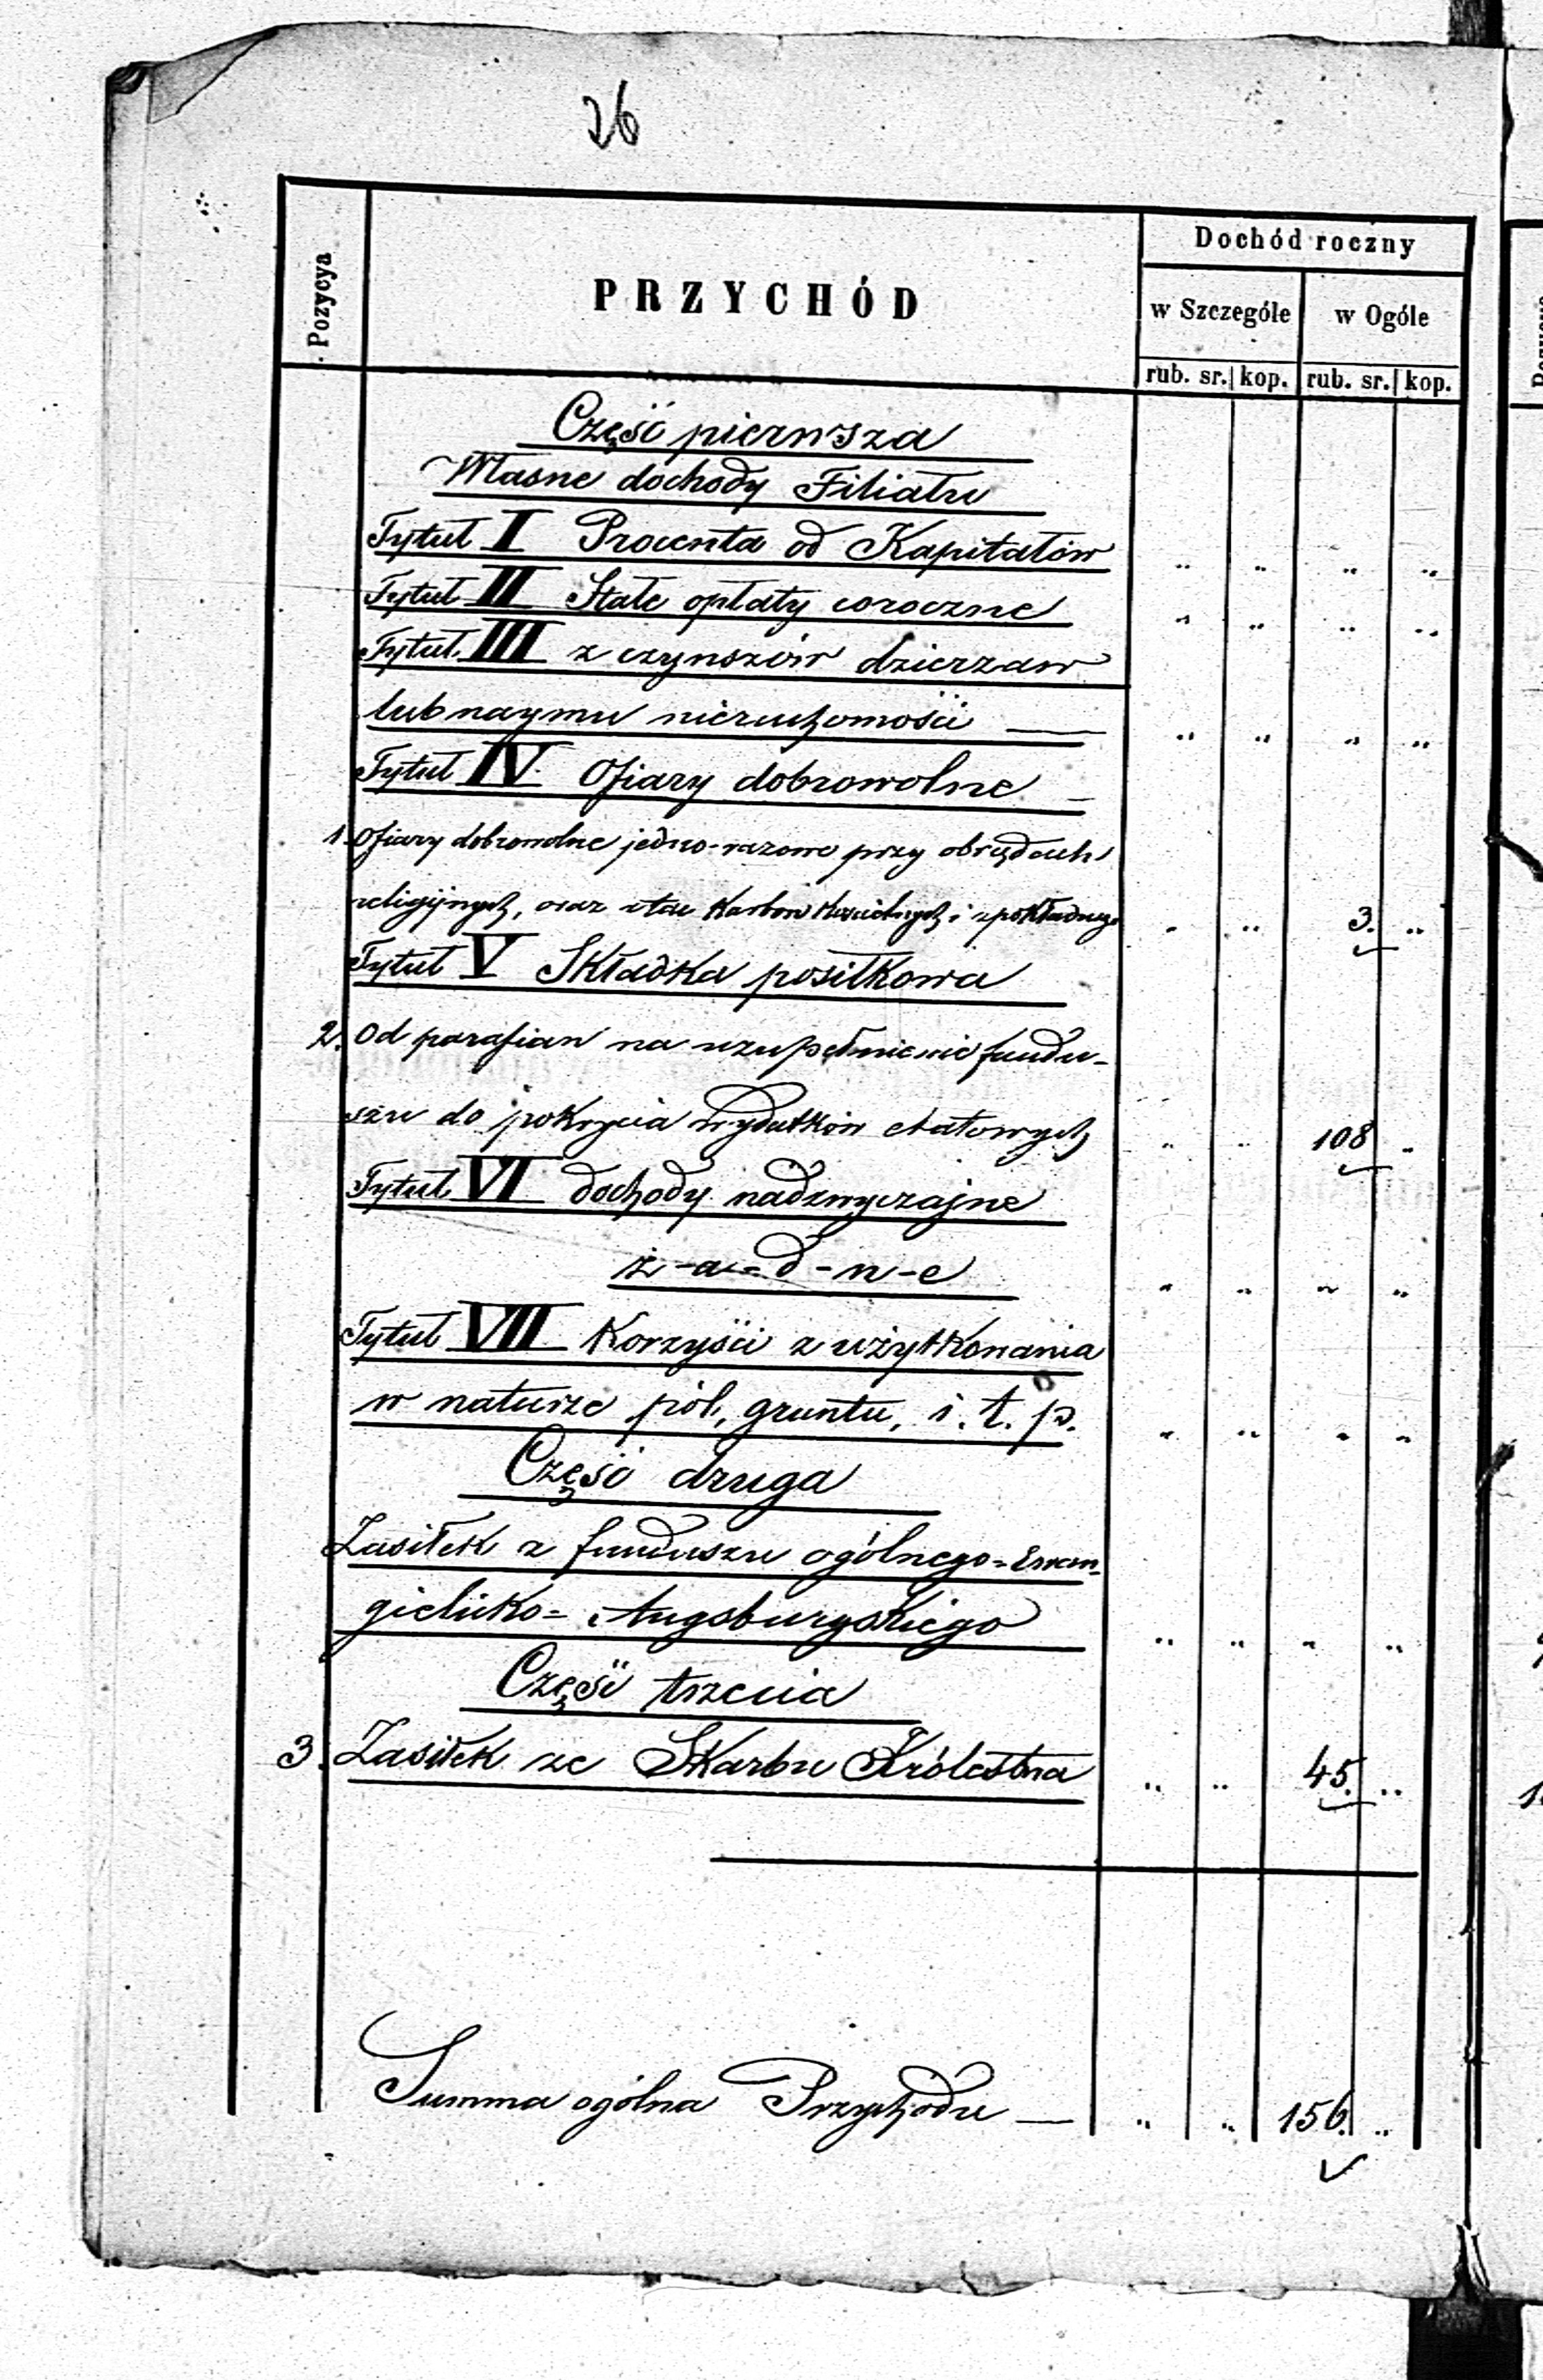 26
Pozycya
PRZYCHÓD
Dochód roczny
w Szczególe
w Ogóle
rub. sr. kop. rub. sr. kop.
Część pierwsza
Własne dochody Filiału
Tytuł I Procenta od Kapitałów „ „ „ „
Tytuł II Stałe opłaty coroczne „ „ „ „
Tytuł III z czynszów dzierzaw
lub naymu nieruchomości — „ „ „ „
Tytuł IV. Ofiary dobrowolne —
1. Ofiary dobrowolne jedno-razowe przy obrzędach
religijnych, oraz z tac Karbon Kościelnych i z pokładnego „ „ 3. „
Tytuł V Składka posiłkowa
2. Od parafian na uzupełnienie fundu-
szu do pokrycia wydatków etatowych „ „ 108 „
Tytuł VI dochody nadzwyczajne
ż-a-d-n-e „ „ „ „
Tytuł VII Korzyści z użytkowania
w naturze pól, gruntu, i. t. p. „ „ „ „
Część druga
Zasiłek z funduszu ogólnego=Ewan-
gielicko=Augsburgskiego „ „ „ „
Część trzecia
3. Zasiłek ze Skarbu Królestwa „ „ 45. „
Summa ogólna Przychodu — „ „ 156. „